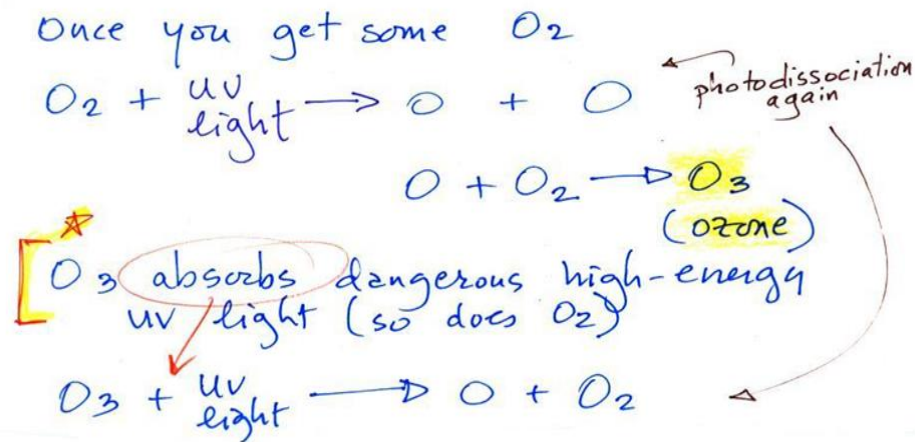 Once you get some O₂
O₂ + uv light → O + O
photodissociation again
O + O₂ → O₃
(ozone)
O₃ absorbs dangerous high-energy
uv light (so does O₂)
O₃ + uv light → O + O₂